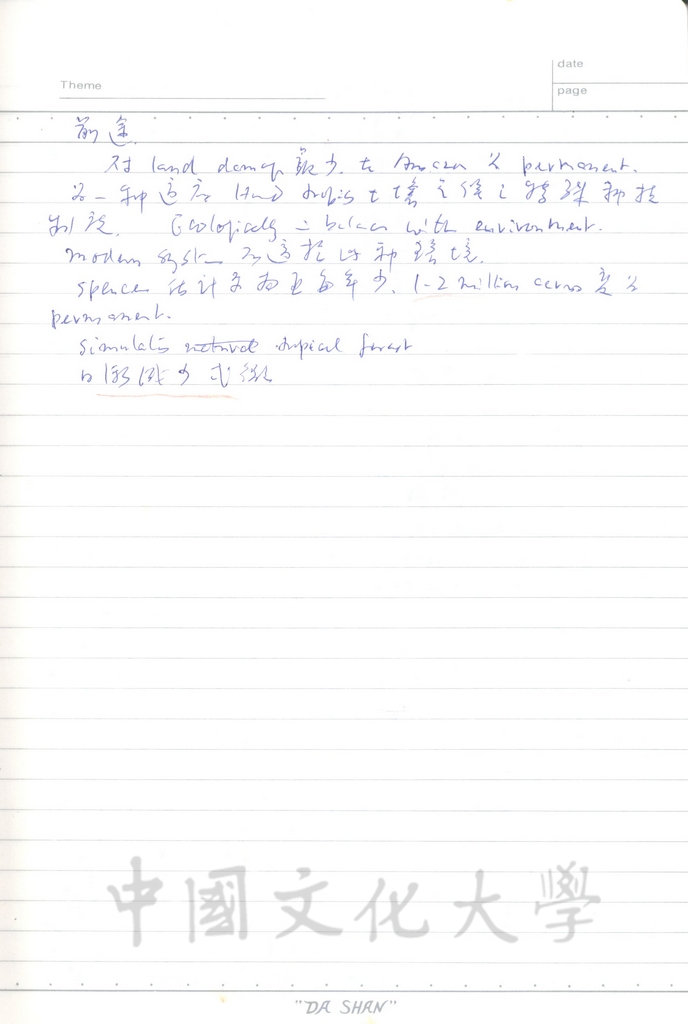 Theme
date
page
前途.
对 land damage 最少. 在 Amazon 为 permanent.
为一种适应 humid tropics 土壤气候之特殊种植
制度. Ecologically in balance with environment.
modern system 不适于此种环境.
Spencer 估计 每年少. 1-2 million acres
permanent.
simulates natural tropical forest
日渐减少 式微
中國文化大學
"DA SHAN"